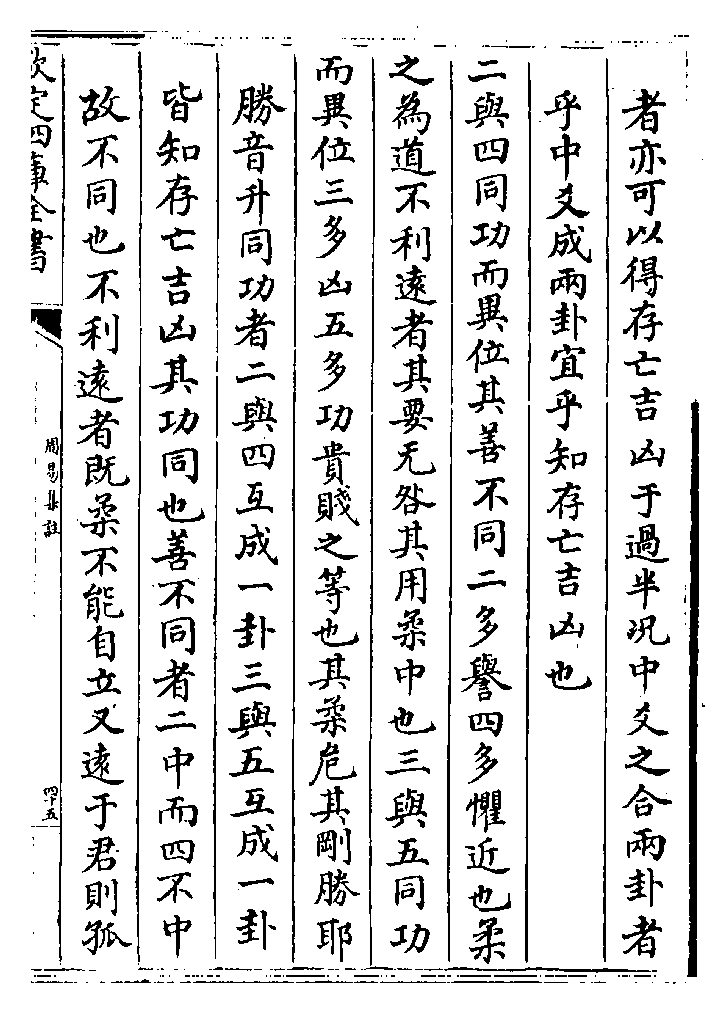 者亦可以得存亡吉凶于過半况中爻之合兩卦者
乎中爻成兩卦宜乎知存亡吉凶也
二與四同功而異位其善不同二多譽四多懼近也柔
之為道不利遠者其要无咎其用柔中也三與五同功
而異位三多凶五多功貴賤之等也其柔危其剛勝耶
勝音升同功者二與四互成一卦三與五互成一卦
皆知存亡吉凶其功同也善不同者二中而四不中
故不同也不利遠者既柔不能自立又遠于君則孤
欽定四庫全書
周易集註
四十五